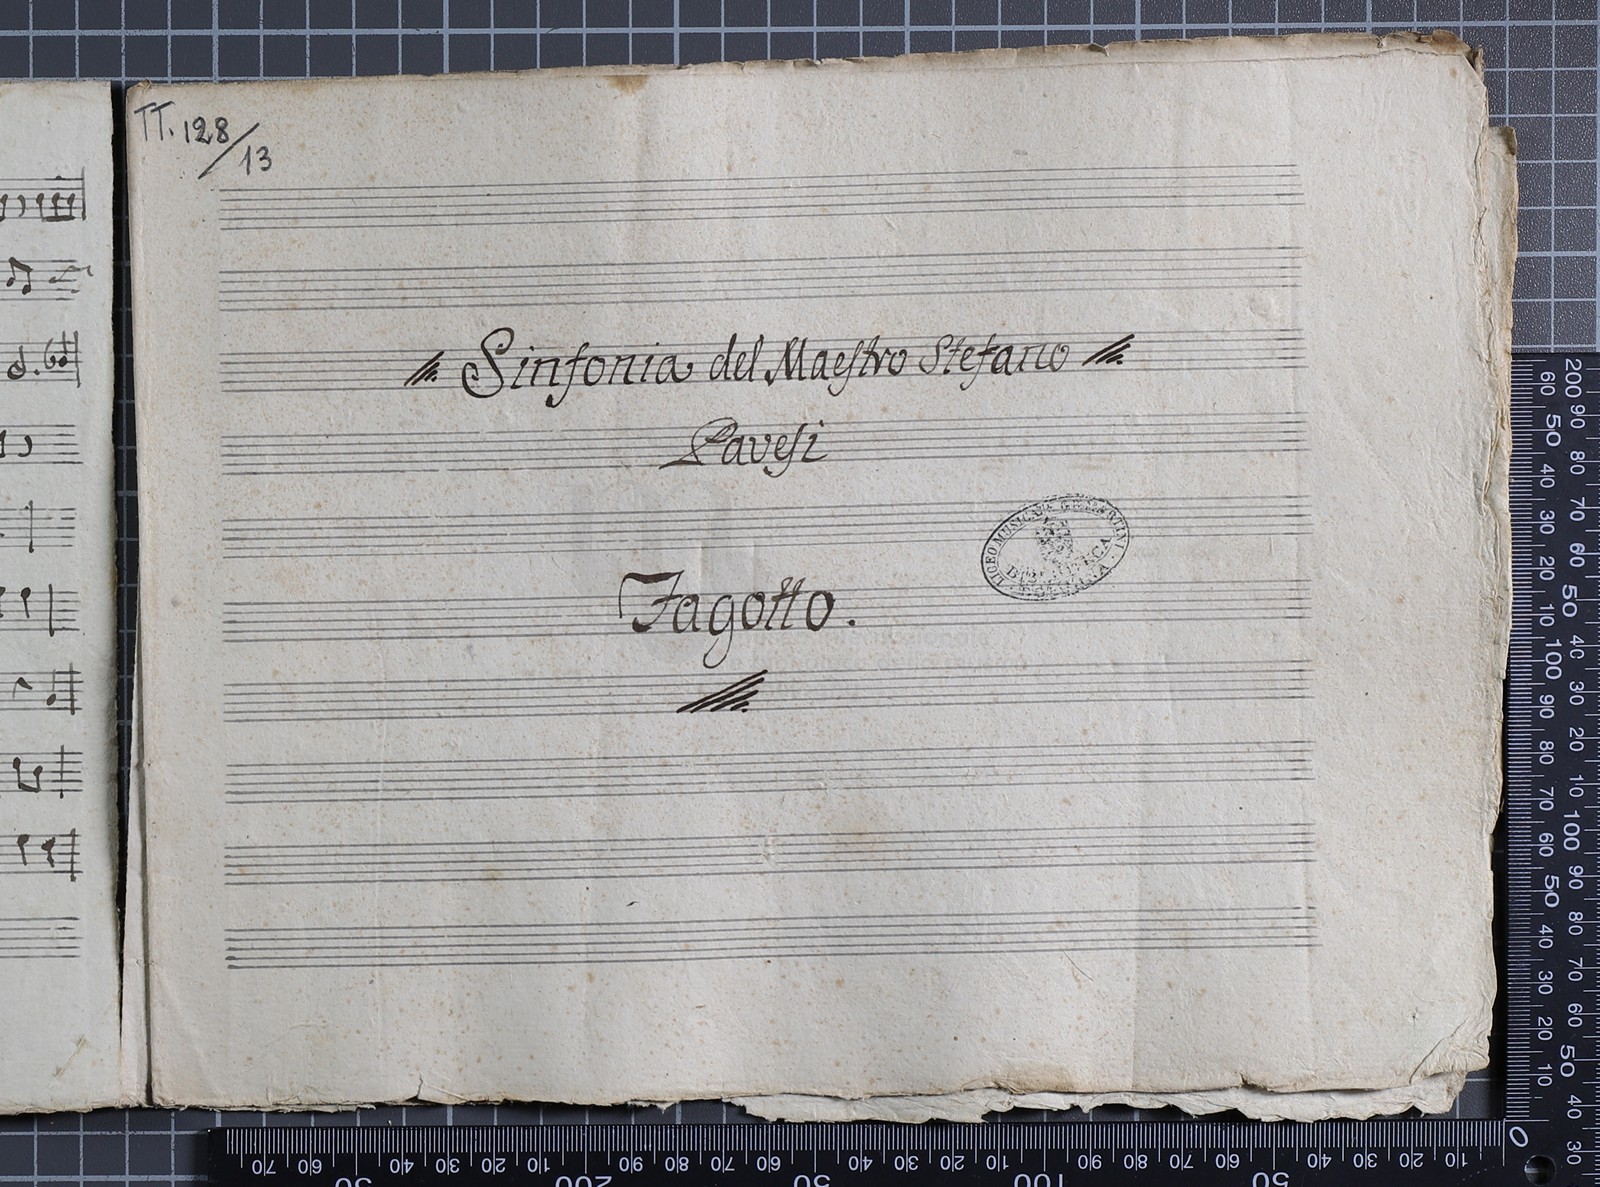 TT. 128/13
Sinfonia del Maestro Stefano
Pavesi
Fagotto.
LICEO MUSICALE G. B. MARTINI
BIBLIOTECA